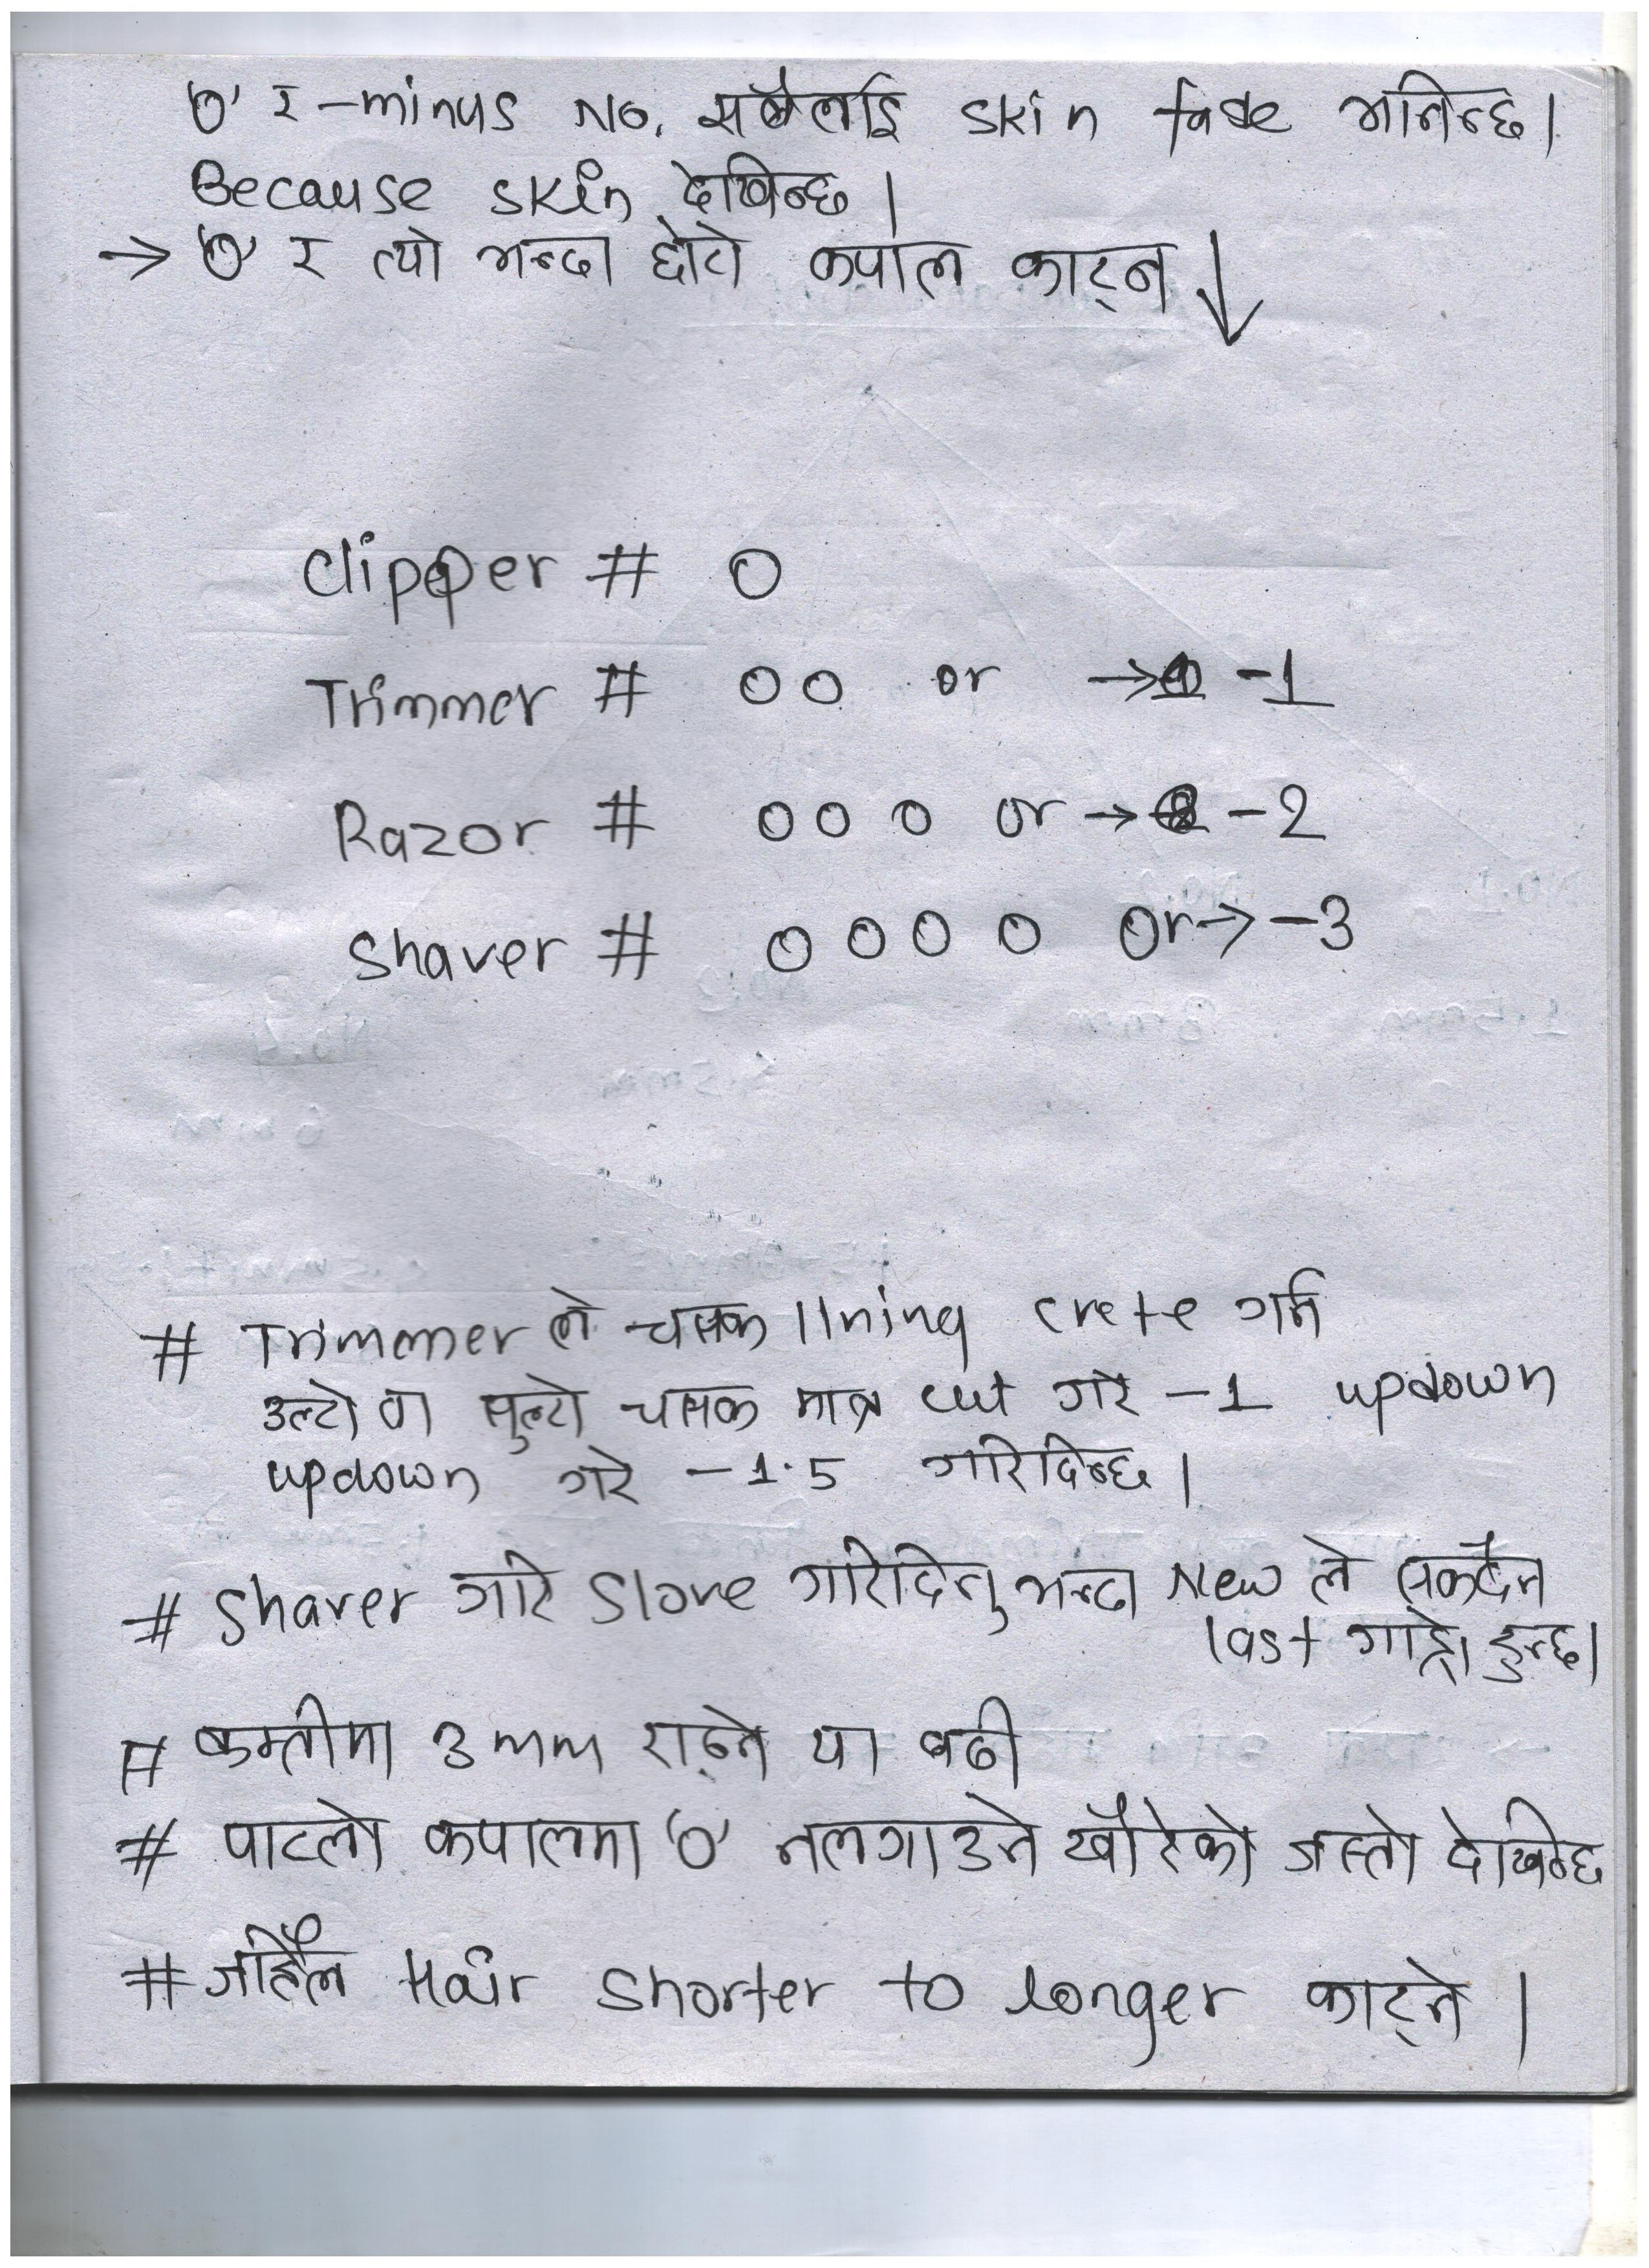 '0' र -minus No. सबैलाई skin fade भनिन्छ।
Because skin देखिन्छ।
→ '0' र त्यो भन्दा छोटो कपाल काट्न ↓
Clipper # 0
Trimmer # 00 or → -1
Razor # 000 or → -2
Shaver # 0000 or → -3
# Trimmer ले चम्क lining crete गर्न
उल्टो वा सुल्टो चम्क मात्र cut गरे -1 updown
updown गरे -1.5 गरिदिन्छ।
# Shaver गरि Slove गरिदिनु भन्दा New ले सक्दैन
last गाह्रो हुन्छ।
# कम्तीमा 3mm राख्ने या बढी
# पाटलो कपालमा '0' नलगाउने खौरेको जस्तो देखिन्छ
# जहिले Hair shorter to longer काट्ने।